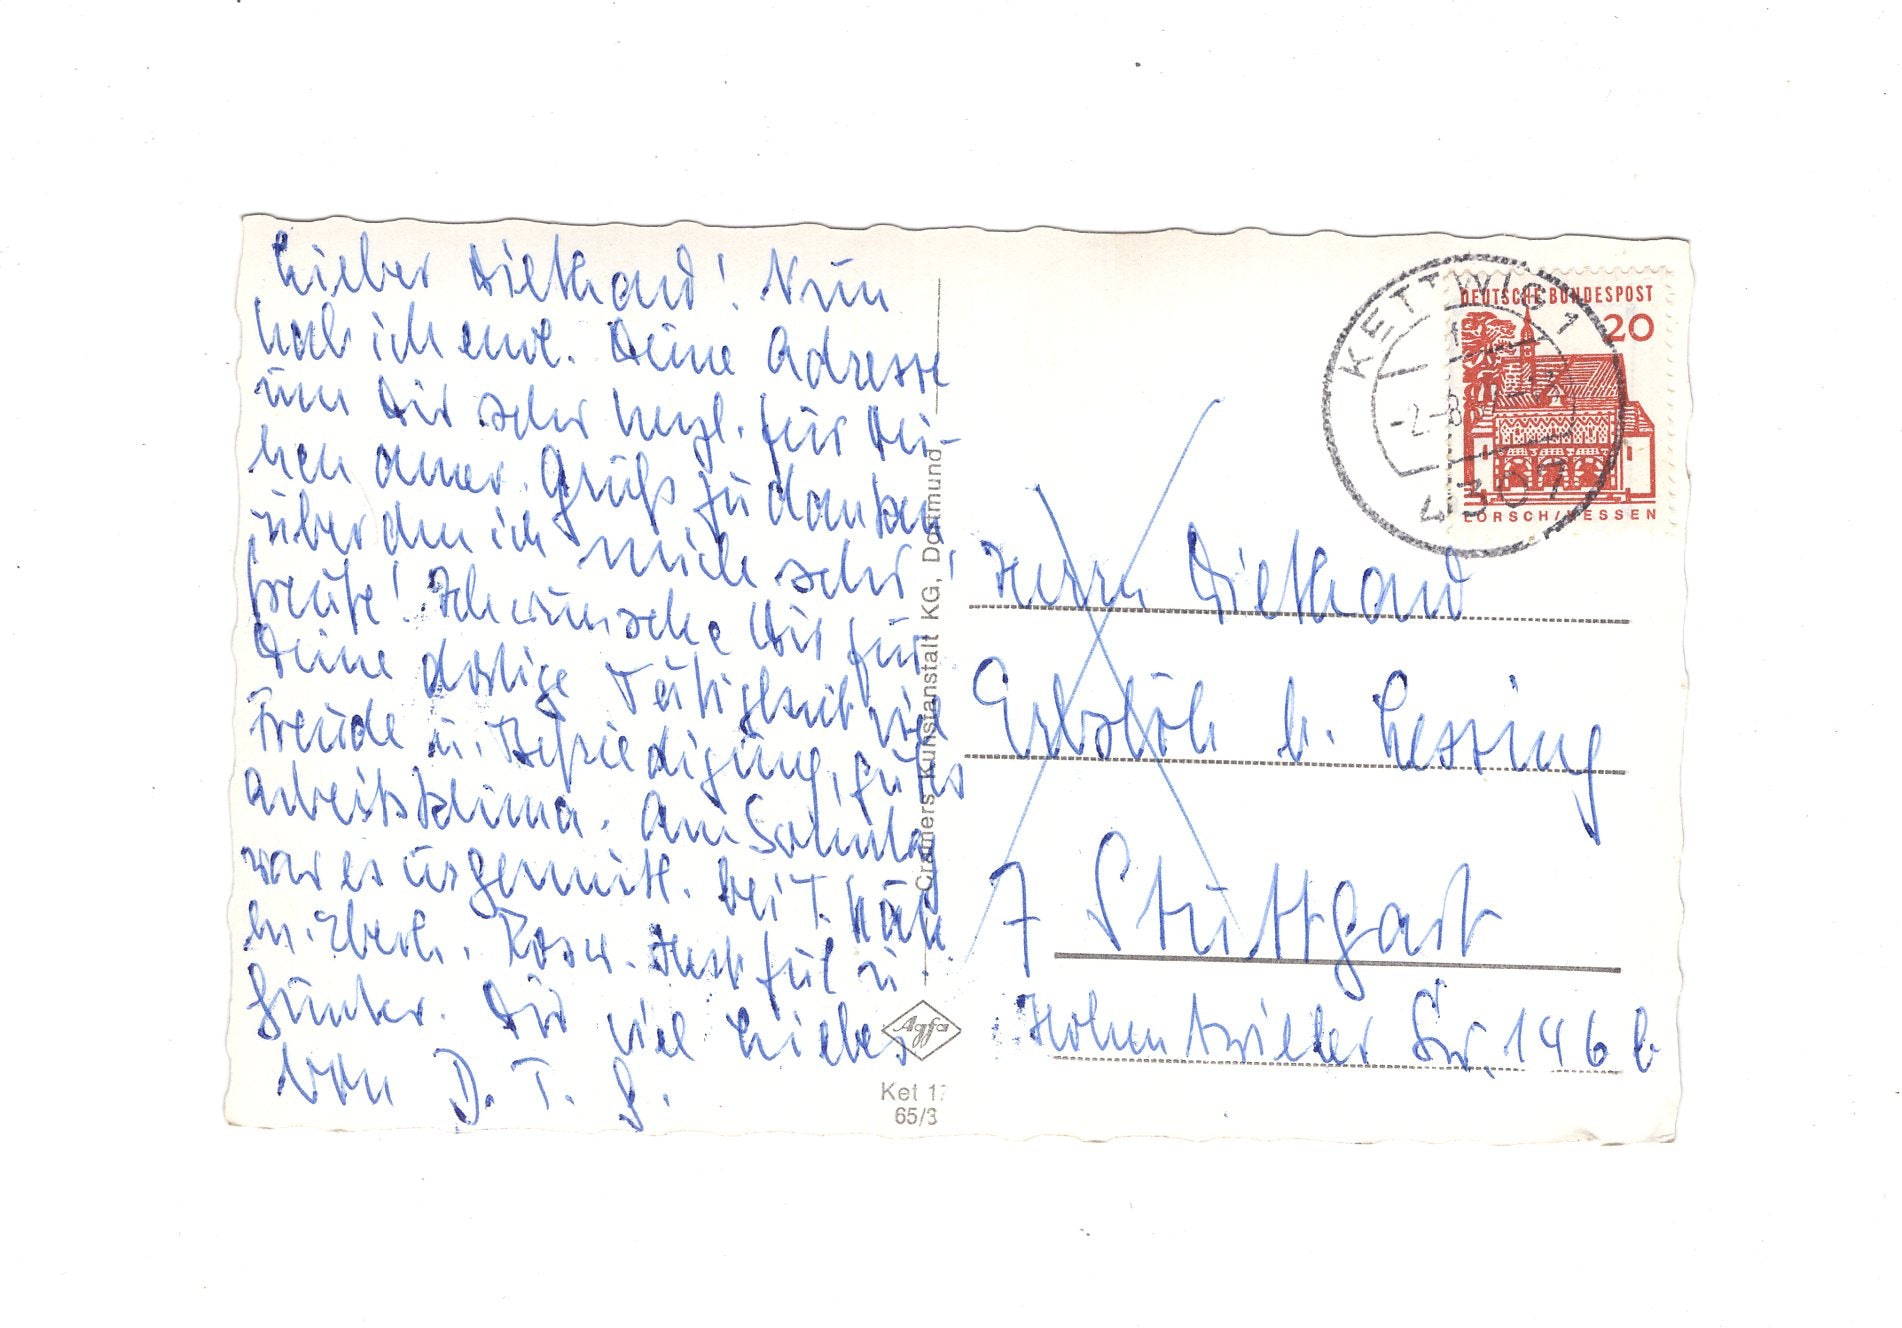 Lieber Diethard! Nun
hab ich endl. Deine Adresse
um Dir sehr herzl. für Dei-
nen amer. Gruß zu danken
über den ich mich sehr
freute! Ich wünsche Dir für
Deine dortige Tätigkeit viel
Freude u. Befriedigung, gutes
Arbeitsklima. Am Sonntag
war es urgemütl. bei T. Käte
m. Eberh., Rosw.
Günter. Dir viel Liebes
von D. T. G.
Cramers Kunstanstalt KG, Dortmund
Agfa
Ket 17
65/3
KETTWIG 1
-2.-8.
4307
DEUTSCHE BUNDESPOST
20
LORSCH/HESSEN
Herrn Diethard
Erbslöh b. Lessing
7 Stuttgart
Hohentwieler Str. 146 b